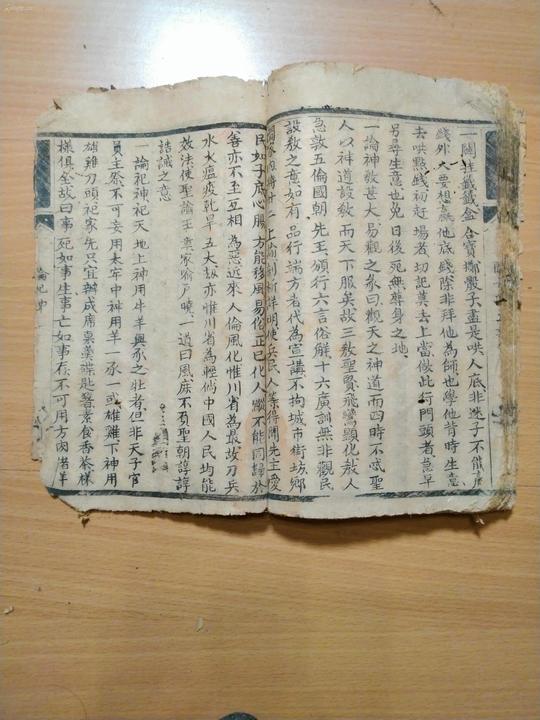 一闖挂籤籤盒合寶擲骰子盡是哄人底非迷子不能
錢外夫要想贏他底錢除非拜他為師也學他昔時生意
去哄點錢初赶場者切記莫去上當做此行門頭者急早
另尋生意也免日後死無葬身之地
一論神教甚大易觀之彖曰觀天之神道而四時不忒聖
人以神道設教而天下服矣故三教聖賢飛鸞顯化救人
急敦五倫國朝先王頒行六言俗解十六廣訓無非觀民
設教之意如有品行端方者代為宣講不拘城市街坊鄉
上諭剖晰詳明使兵民人等得聞先王愛
民如子底心腸方能移風易俗正己化人縱不能同歸於
善亦不至互相為惡近來人倫風化惟川省為最故刀兵
水火瘟疫乾旱五大刼亦惟川省為輕倘中國人民均能
效法使聖諭王章家喻戶曉一道同風庶不負聖朝諄諄
誥誡之意
一論祀神祀天地上神用牛羊興豕之壯者但非天子官
員主祭不可妄用太牢中神用羊一豕一或雄雞下神用
雄雞刀頭祀家先只宜辦成席桌羹碟匙箸素食香茶樣
樣俱全故曰事死如事生事亡如事存不可用方肉猪羊
論祀神